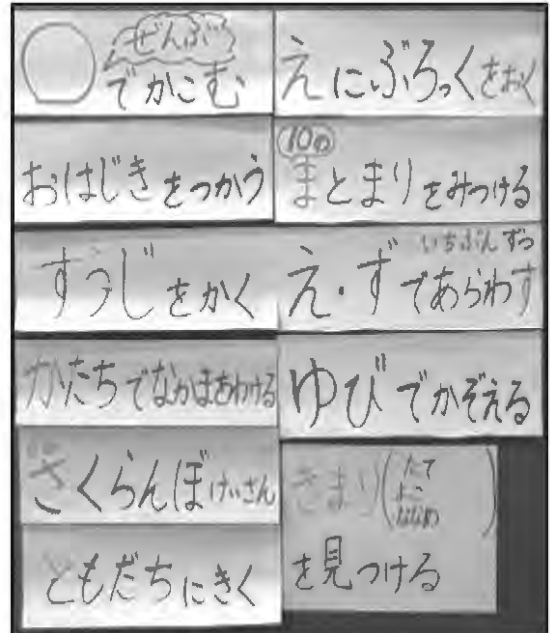 ぜんぶ
でかこむ
えにぶろっくをおく
おはじきをつかう
10の
まとまりをみつける
すうじをかく
いちぶんずつ
え・ずであらわす
かたちでなかまをわける
ゆびでかぞえる
さくらんぼけいさん
きまり(たて
よこ
ななめ)
を見つける
ともだちにきく